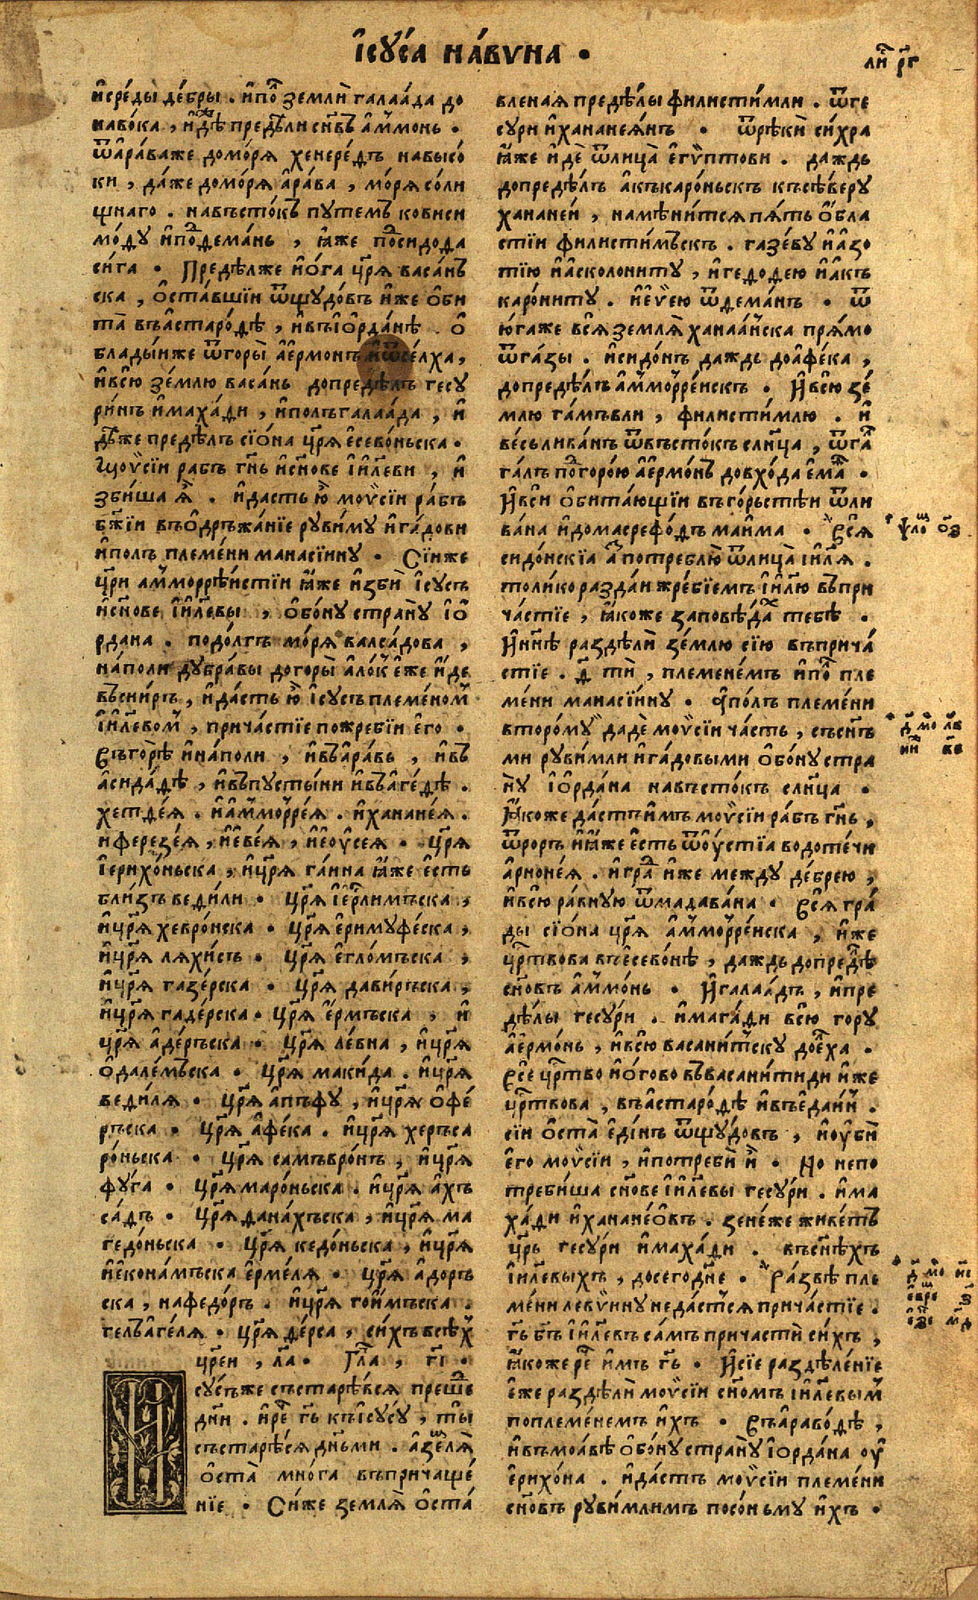 І҆сꙋ́са на́вѵна ·
ли҃ рг҃
и҆среды̀ де́бры . и҆по҃ землѝ галаа́да до
наво́ка , и҆дѣ́же предѣ́ли сн҃въ а҆ммонь .
ѿа҆ра́важе домо́ря хенере́дъ навысо́
ки , да́же домо́ря а҆ра́ва , мо́ря со́ли
щнаго . навъсто́къ путемъ ковиси
мо́ду и҆подема́нь , ꙗ҆́же посидода
си́га · Преде́лже и҆ѻ́га цр҃я васа́нъ
ска , ѻ҆ста́вшіи ѿщудо́въ и҆́же ѻ҆би
та̀ въа҆старо́дѣ , и҆въі҆ѻ҆рда́нѣ . ѻ҆
блады́иже ѿгоры̀ а҆е҆рмонъ и҆ѿсе́лха ,
и҆всю̀ зе́млю васа́нь допреде́лъ гесу
ри́нъ и҆маха́ди , и҆полъгалаа́да , и҆
дѣ́же предѣ́лъ сіѻ́на цр҃я е҆сево́ньска .
Моѵ҆сіи рабъ гн҃ь и҆сн҃ове і҆и҃леви , и҆
зби́ша ꙗ҆̀ . и҆дастъ ю҆̀ моѵ҆сіи ра́бъ
бж҃іи въѻ҆дръжа́ніе руви́му и҆га́дови
и҆полъ племе́ни манасі́ину · Сіиже
цр҃и а҆мморре́истіи ꙗ҆́же и҆збѝ і҆су́съ
и҆сн҃ове і҆и҃левы , ѻ҆бо́ну страну і҆ѻ
рдана . подо́лгъ мо́ря валса́дова ,
наполи дубра́вы догоры̀ а҆ло́к е҆́же и҆́де
въси́ръ , и҆дастъ ю҆̀ і҆су́съ племено́м
і҆и҃левом , прича́стіе пожре́біи е҆го̀ .
Въго́рѣ и҆на́поли , и҆въа҆ра́вь , и҆въ
а҆сида́дѣ , и҆въпусты́ни и҆въа҆ге́дѣ .
хетде́я . и҆а҆ммо́ррея . и҆ханане́я .
и҆ферезе́я , и҆е҆ве́я , и҆е҆оу҆сея · цр҃я
і҆ерихо́ньска , и҆цр҃я га́ина ꙗ҆́же е҆сть
бли́зъ веди́ли · цр҃я і҆ер҃лимъска ,
и҆цр҃я хевро́нска · цр҃я е҆римуфе́ска ,
и҆цр҃я ляхи́съ · цр҃я е҆гло́мъска ,
и҆цр҃я газе́рска · цр҃я дави́ръска ,
и҆цр҃я гаде́рска · цр҃я е҆рмъска , и҆
цр҃я а҆де́ръска · цр҃я ле́вна , и҆цр҃я
ѻ҆дале́мъска · цр҃я маки́да . и҆цр҃я
веди́ля · цр҃я а҆пъфу , и҆цр҃я ѻ҆фе́
ръска · цр҃я а҆фе́ка . и҆цр҃я херъса
ро́ньска · цр҃я самъвро́нъ , и҆цр҃я
фу́га · цр҃я маро́ньска . и҆цр҃я а҆хъ
са́дъ · цр҃я дана́хъска , и҆цр҃я ма
гедо́ньска · цр҃я кедо́ньска , и҆цр҃я
и҆екона́мъска е҆рме́ля · цр҃я а҆доръ
ска , нафедо́ръ . и҆цр҃я гои́мъска .
гельаге́ля · цр҃я де́рса , си́хъ всѣх
цр҃еи , л҃а · Гла҃ , г҃і ·
И҆сусъже състарѣ́вся преше́
дни . и҆ре҃ гь҃ къі҆су́су , ты̀
състарѣ́ся дн҃ьми . а҆земля̀
ѻ҆ста̀ мно́га въпричаще́
ніе · Си́же земля̀ ѻ҆ста́
вленая предѣ́лы филисти́мли . ѿге
сури и҆ханане́янъ · ѿрѣкѝ си́хра
ꙗ҆́же и҆́дѐ ѿлица̀ е҆гѵ́птови . даждь
допредѣ́лъ а҆къкаро́ньскъ късѣ́веру
ханане́и , намѣни́тся пять ѻ҆бла
стіи филисти́мъскъ . газе́ву и҆а҆зо
тію и҆а҆сколониту , и҆гедодею и҆а҆къ
каро́ниту . и҆е҆ѵ҆ею ѿдема́нъ · ѿ
ю҆гаже вся̀ земля̀ ханаа́нска пря́мо
ѿга́зы . и҆сидо́нъ даждь доа҆фе́ка ,
допредѣ́лъ а҆ммо́рренскъ · И҆всю̀ зе́
млю га́мъвли , филисти́млю . и҆
ве́сьлива́нъ ѿвъсто́къ слн҃ца , ѿга
га́лъ по҃горо́ю а҆е҆рмо́нъ довхо́да е҆ма́ .
И҆всѝ ѻ҆бита́ющіи въго́рьстѣи ѿли
ва́на и҆домасрефо́дъ маи́ма · Вся̀
сидо́нскіа а҆́зъ потреблю̀ ѿлица̀ і҆и҃ля .
толи́ко разда́и жре́біемъ і҆и҃лю въпри
ча́стіе , ꙗ҆́коже заповѣ́дах тебѣ̀ .
И҆нн҃ѣ раздѣлѝ зе́млю сію̀ въприча́
стіе . д҃ тѝ , племене́мъ и҆по҃ пле
ме́ни манасі́ину . А҆по́лъ племе́ни
второ́му дадѐ моѵ҆сіи ча́сть , съсн҃ъ
ми руви́мли и҆га́довыми ѻ҆бо́ну стра
ну і҆ѻрда́на навъсто́къ слн҃ца .
Ꙗ҆́коже да́стъ и҆́мъ моѵ҆сіи ра́бъ гн҃ь ,
ѿроръ и҆ꙗ҆́же е҆сть ѿоу҆́стіа водоте́чи
а҆рноне́я . и҆гра҃ и҆́же между де́брею ,
и҆всю̀ ра́вную ѿмадава́на · Вся̀ гра́
ды сіѻ́на цр҃я а҆ммо́рре́нска , и҆́же
цр҃твова въе҆севонѣ , даждь допредѣ́
сн҃овъ а҆ммо́нь · И҆галаа́дъ , и҆пре
дѣ́лы гесу́ри . и҆мага́ди всю̀ гору
а҆е҆рмо́нь , и҆всю̀ васани́тску дое҆ха .
Всѐ цр҃тво и҆ѻ́гово въвасани́тиди и҆́же
цр҃твова , въа҆старо́дѣ и҆въе҆даи́н .
сіи ѻ҆ста̀ е҆ди́нъ ѿщудо́въ , и҆оу҆бѝ
е҆го моѵ҆сіи , и҆потребѝ и҆̀ · Но непо
треби́ша сн҃ове і҆и҃левы гесу́ри . и҆ма
ха́ди и҆ханане́ѻвъ . зане́же живе́тъ
цр҃ь гесу́ри и҆маха́ди . въсн҃ѣхъ
і҆и҃левыхъ , досегодне . Ра́звѣ пле
ме́ни левѵ́ину неда́стся прича́стіе .
гь҃ бг҃ъ і҆и҃левъ са́мъ причастѝ си́хъ ,
ꙗ҆́коже ре҃ и҆́мъ гь҃ · И҆сіе раздѣле́ніе
е҆́же раздѣлѝ моѵ҆сіи сн҃омъ і҆и҃левым
поплеме́немъ и҆́хъ · Въа҆раво́дѣ ,
и҆въмоа́вѣ ѻ҆бо́ну страну̀ і҆ѻрда́на оу҆
е҆рихо́на . и҆да́стъ моѵ҆сіи племе́ни
сн҃овъ руви́млимъ посо́ньму и҆́хъ .
ѱло҃ о҃з